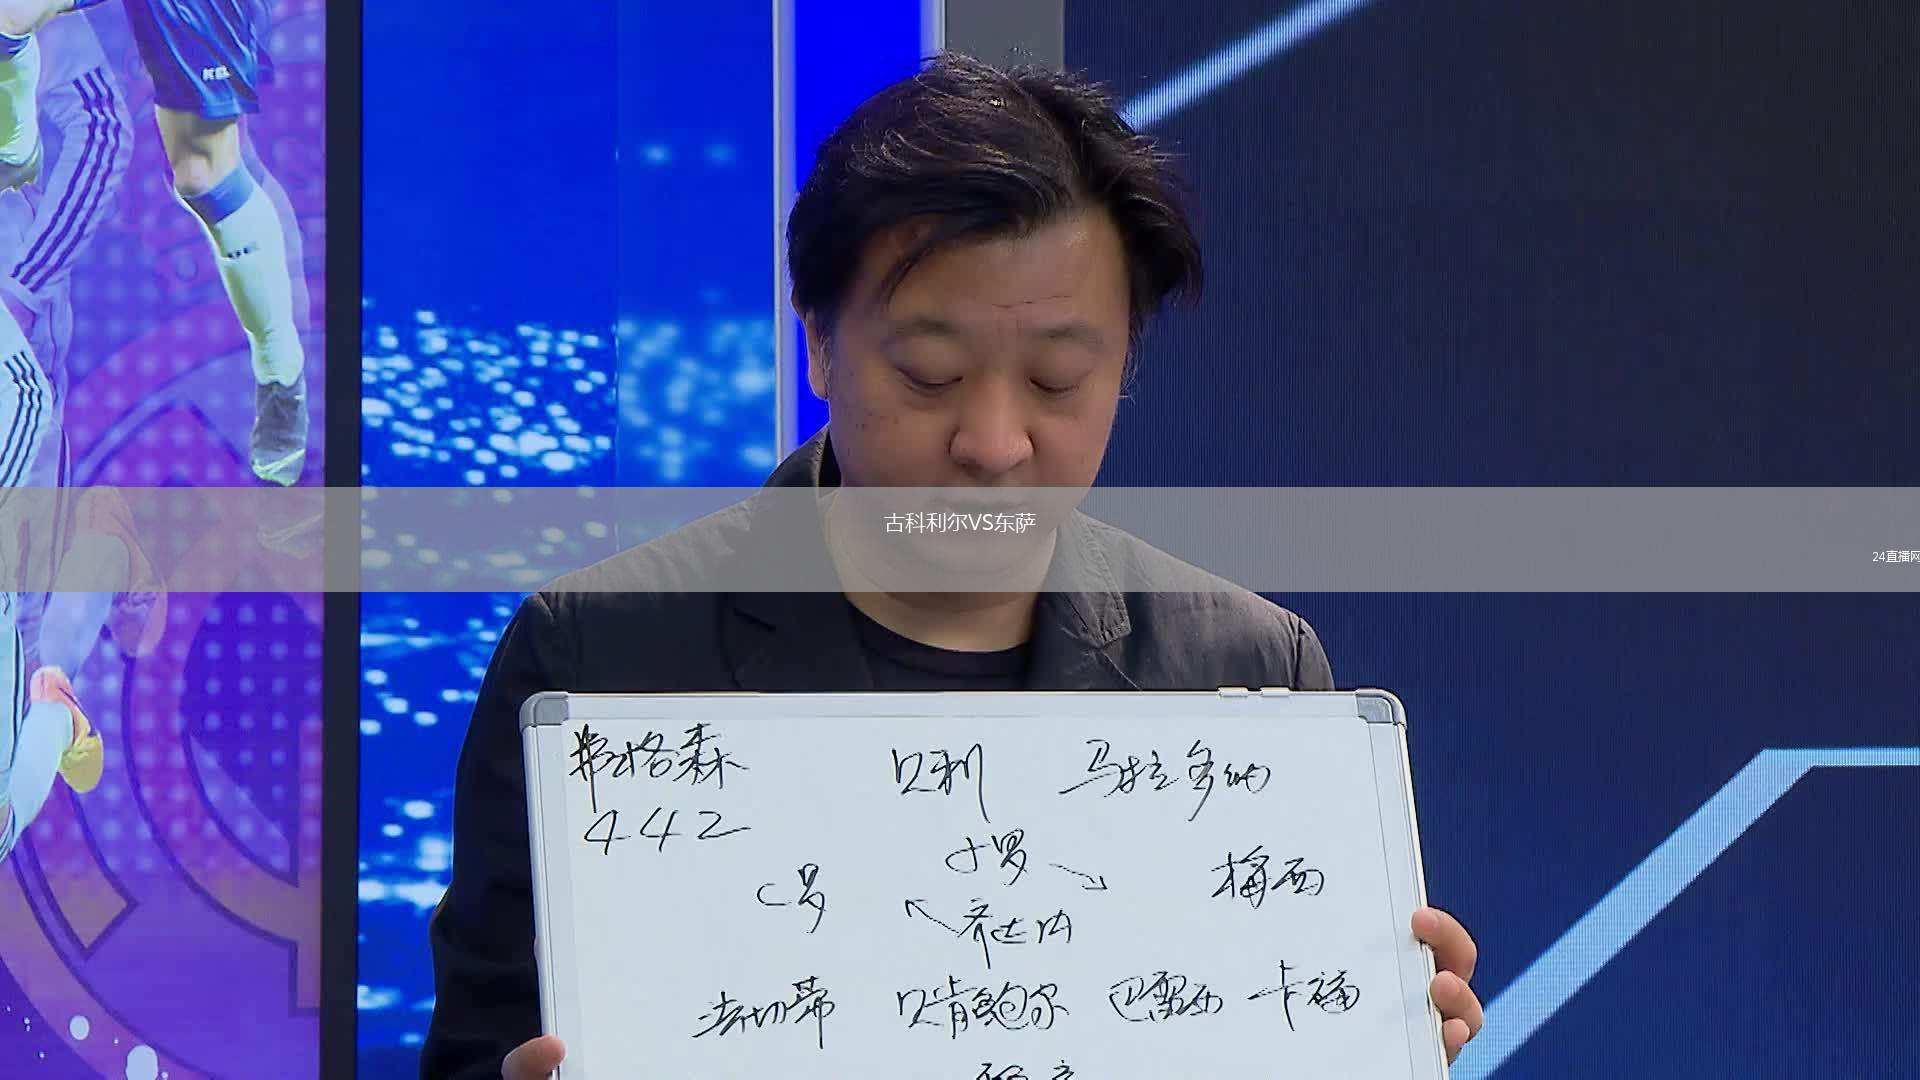 古科利尔VS东萨
24直播网
弗格森 贝利 马拉多纳
442
小罗
C罗 梅西
齐达内
法切蒂 贝肯鲍尔 巴雷西 卡福